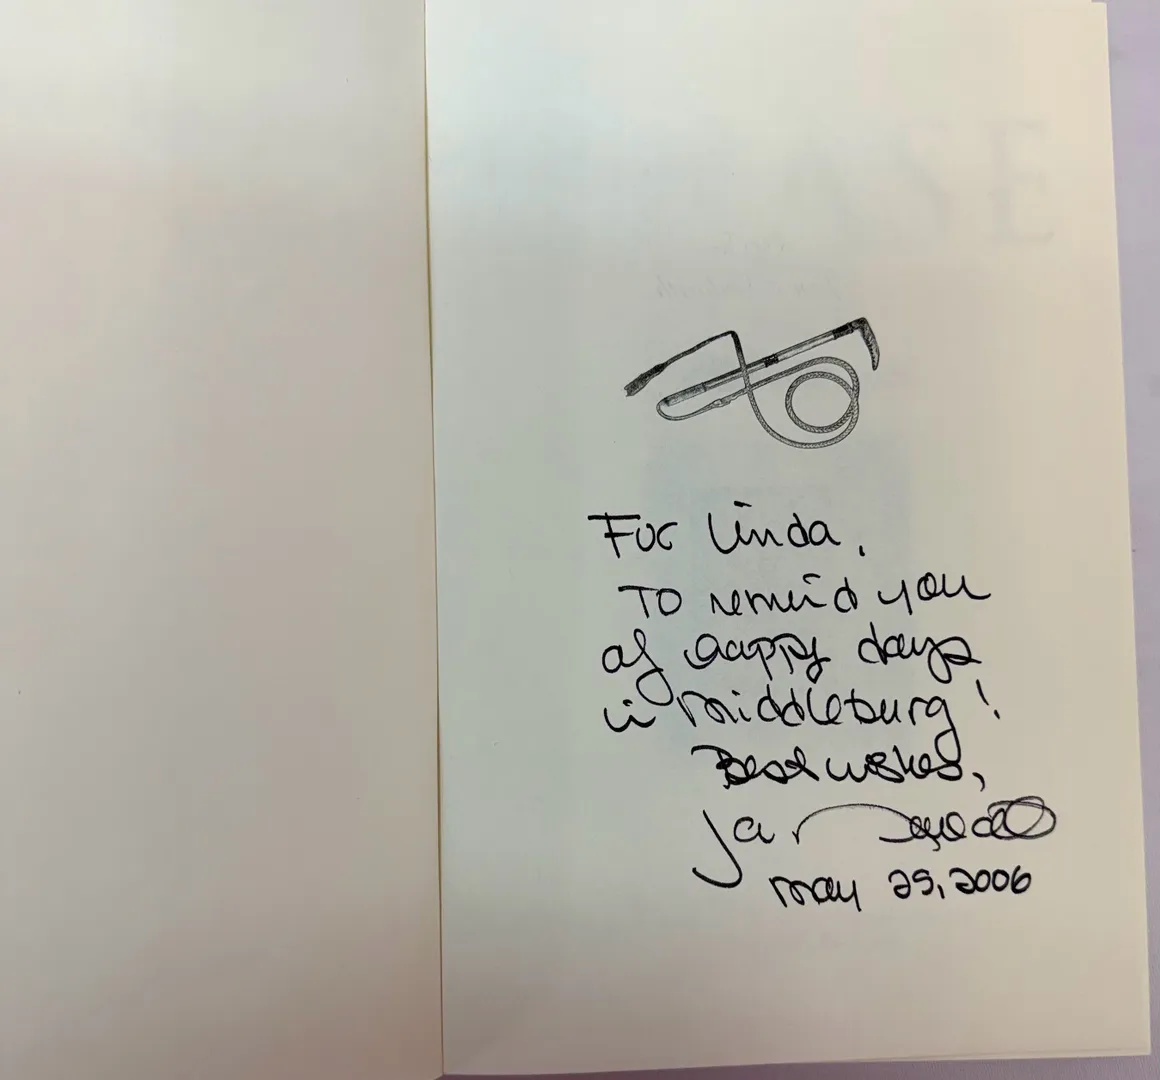 For Linda,
To remind you
of happy days
in Middleburg!
Best wishes,
Jan
May 25, 2006